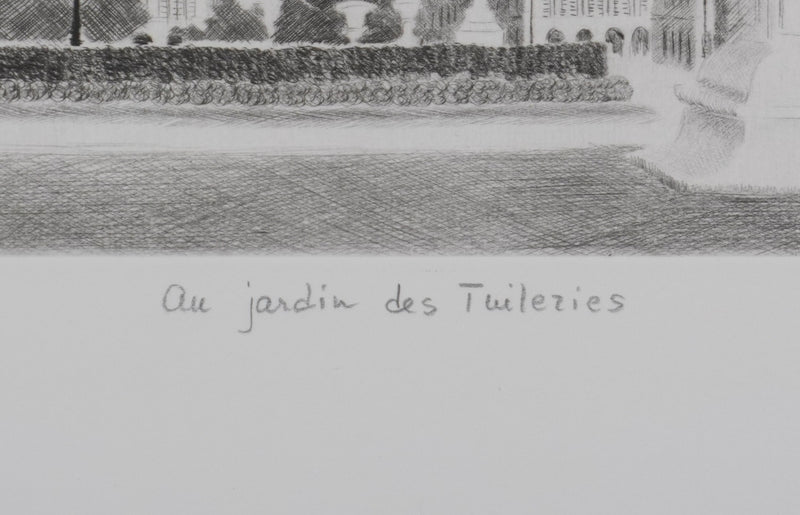 Au jardin des Tuileries